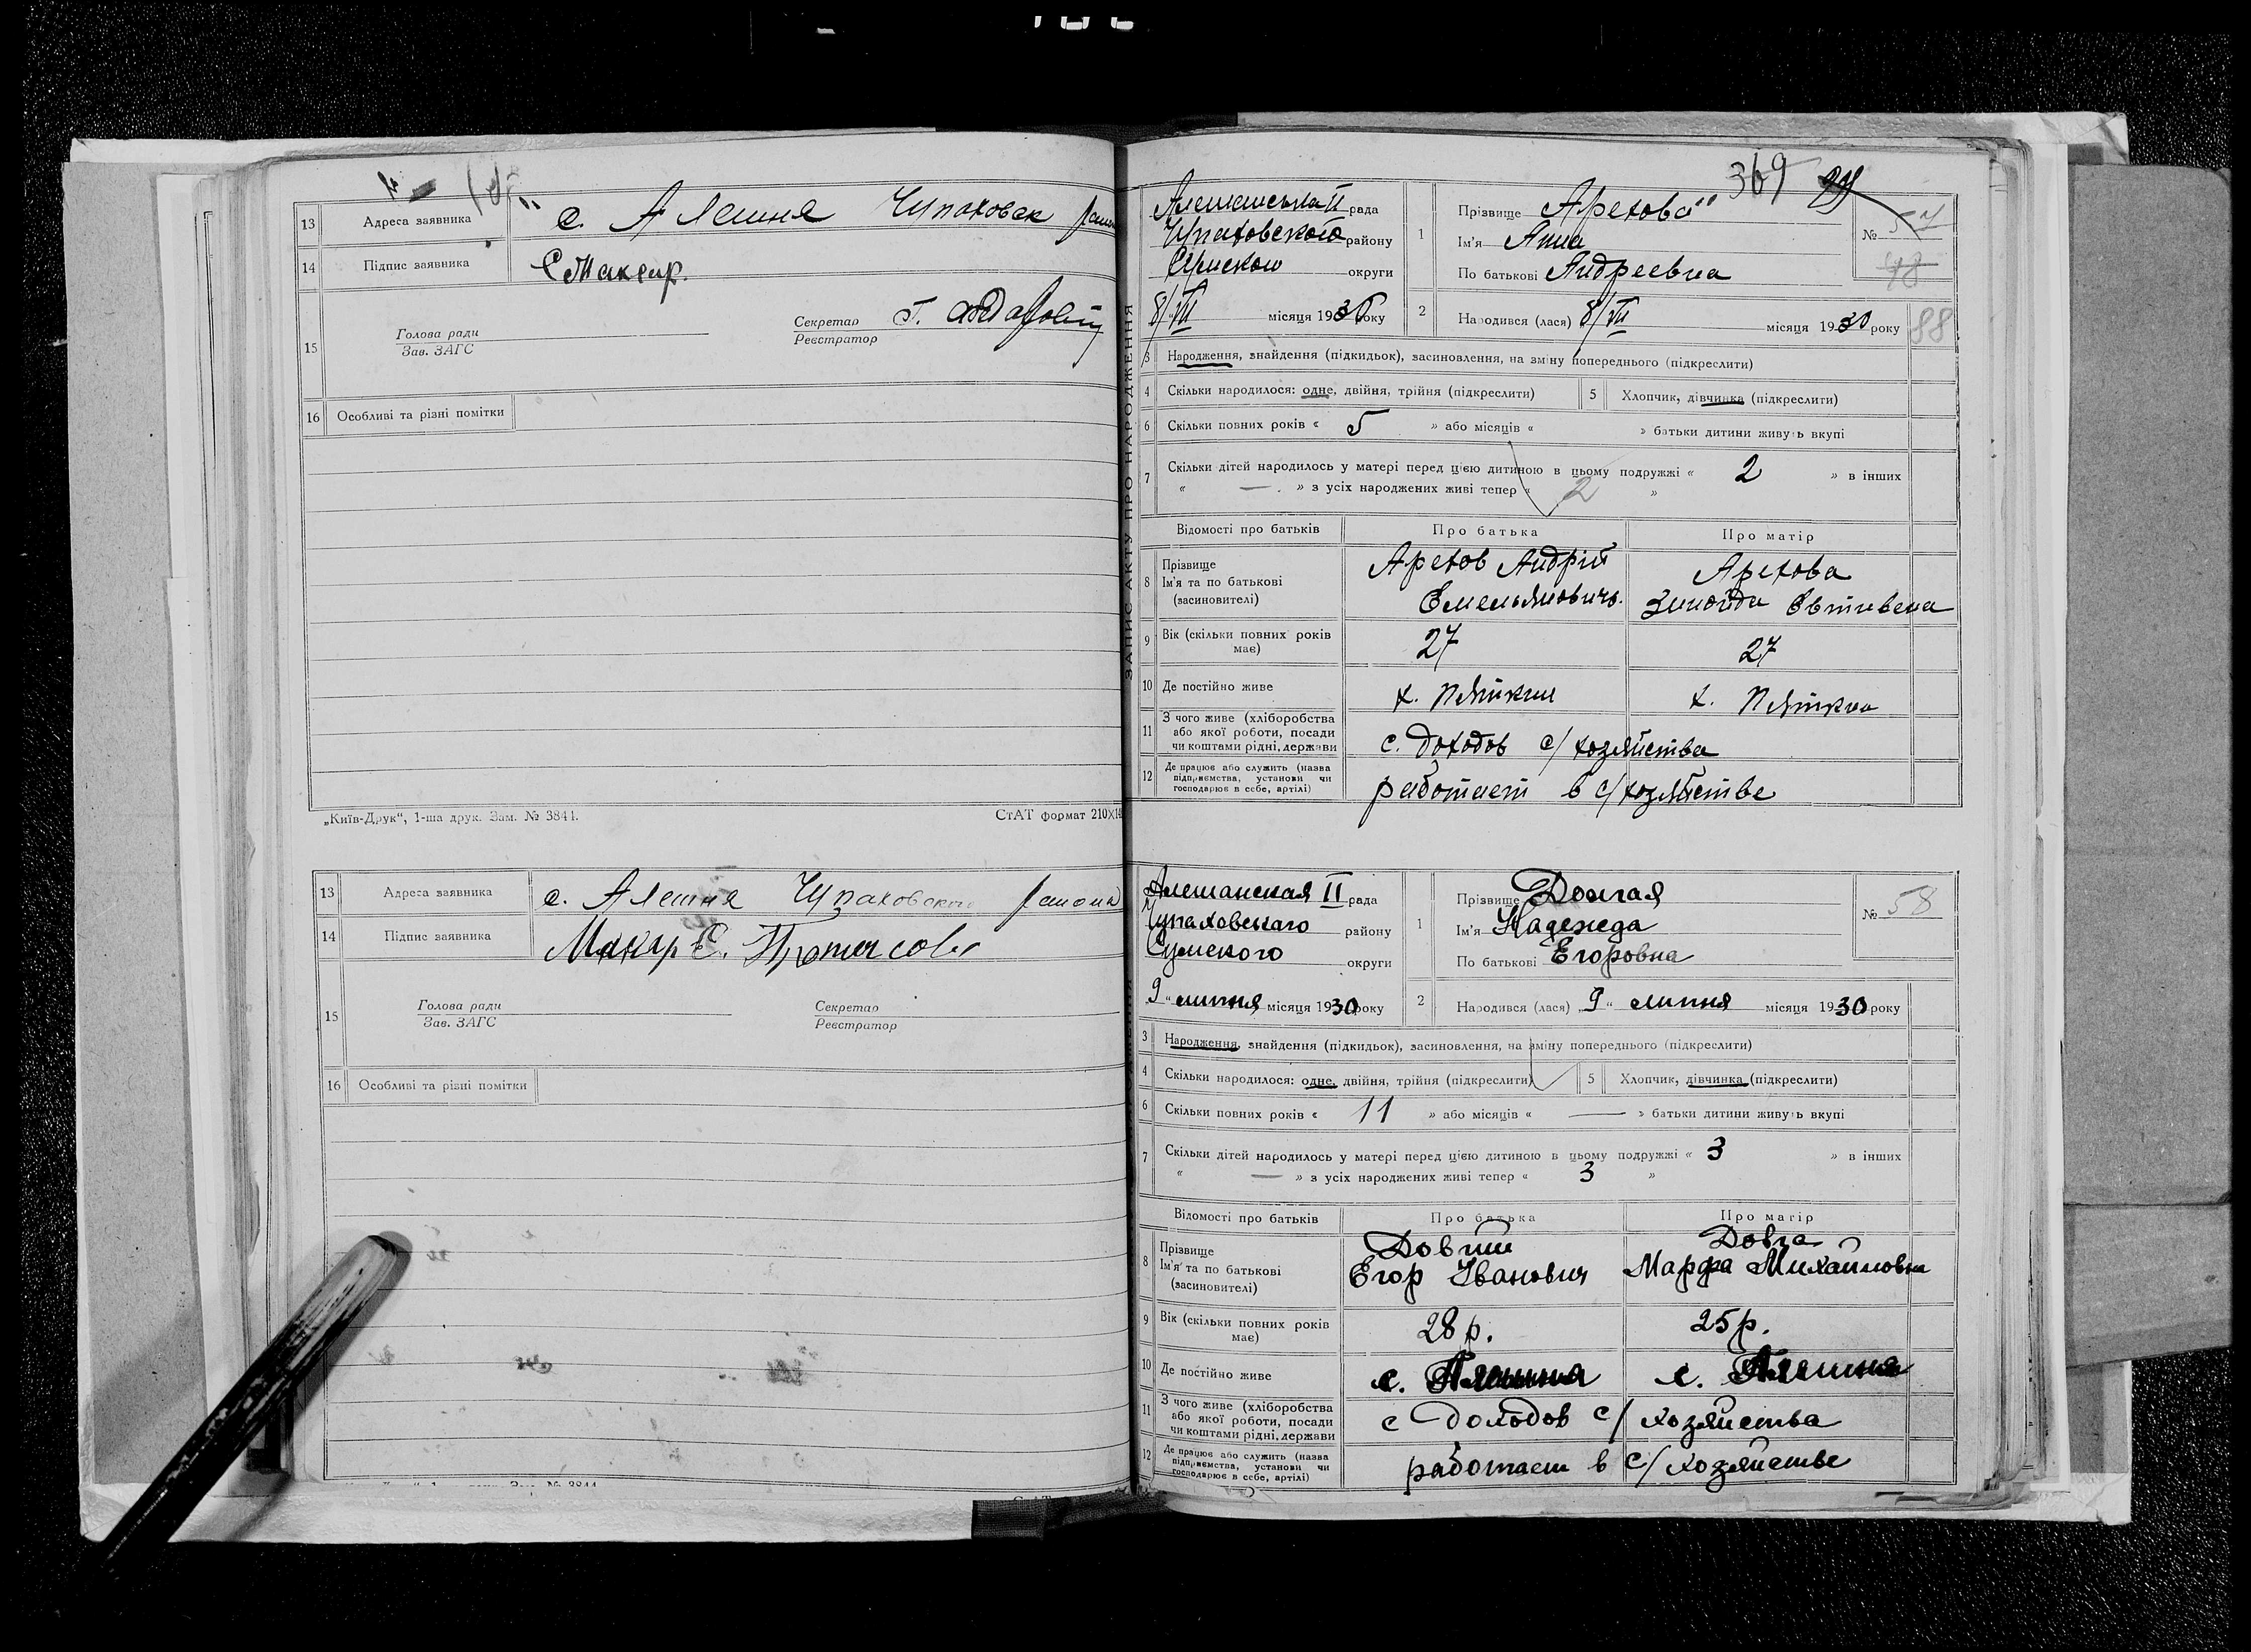 13 Адреса заявника с. Алешня Чупаховск
14 Підпис заявника
15 Голова ради
Зав. ЗАГС
Секретар
Реєстратор
16 Особливі та різні помітки
„Київ-Друк“, 1-ша друк. Зам. № 3844.
СтАТ формат 210×14
13 Адреса заявника с. Алешня Чупаховского района
14 Підпис заявника Макар С.
15 Голова ради
Зав. ЗАГС
Секретар
Реєстратор
16 Особливі та різні помітки
ЗАПИС АКТУ ПРО НАРОДЖЕННЯ
369
рада
Чупаховского району
Сумского округи
8/VII місяця 1930 року
1 Прізвище Арехова
Ім'я Анна
По батькові Андреевна
№ 57
48
2 Народився (лася) 8/VII місяця 1930 року
88
3 Народження, знайдення (підкидьок), засиновлення, на зміну попереднього (підкреслити)
4 Скільки народилося: одне, двійня, трійня (підкреслити)
5 Хлопчик, дівчинка (підкреслити)
6 Скільки повних років « 5 » або місяців « » батьки дитини живуть вкупі
7 Скільки дітей народилось у матері перед цією дитиною в цьому подружжі « 2 » в інших
« — » з усіх народжених живі тепер « 2 »
Відомості про батьків Про батька Про матір
8 Прізвище
Ім'я та по батькові
(засиновителі)
Арехов Андрій
Емельянович
Арехова
9 Вік (скільки повних років
має)
27 27
10 Де постійно живе
11 З чого живе (хліборобства
або якої роботи, посади
чи коштами рідні, держави
с. доходов с/хозяйства
12 Де працює або служить (назва
підприємства, установи чи
господарює в себе, артілі)
работает в с/хозяйстве
Алешанская II рада
Чупаховскаго району
Сумского округи
9 “ липня місяця 1930 року
1 Прізвище Долгая
Ім'я Надежда
По батькові Егоровна
№ 58
2 Народився (лася) „9“ липня місяця 1930 року
3 Народження, знайдення (підкидьок), засиновлення, на зміну попереднього (підкреслити)
4 Скільки народилося: одне, двійня, трійня (підкреслити)
5 Хлопчик, дівчинка (підкреслити)
6 Скільки повних років « 11 » або місяців « — » батьки дитини живуть вкупі
7 Скільки дітей народилось у матері перед цією дитиною в цьому подружжі « 3 » в інших
« — » з усіх народжених живі тепер « 3 »
Відомості про батьків Про батька Про матір
8 Прізвище
Ім'я та по батькові
(засиновителі)
Довгий
Егор Іванович
Довга
Марфа Михайловна
9 Вік (скільки повних років
має)
28 р. 25 р.
10 Де постійно живе с. Алешня с. Алешня
11 З чого живе (хліборобства
або якої роботи, посади
чи коштами рідні, держави
с доходов с/хозяйства
12 Де працює або служить (назва
підприємства, установи чи
господарює в себе, артілі)
работает в с/хозяйстве